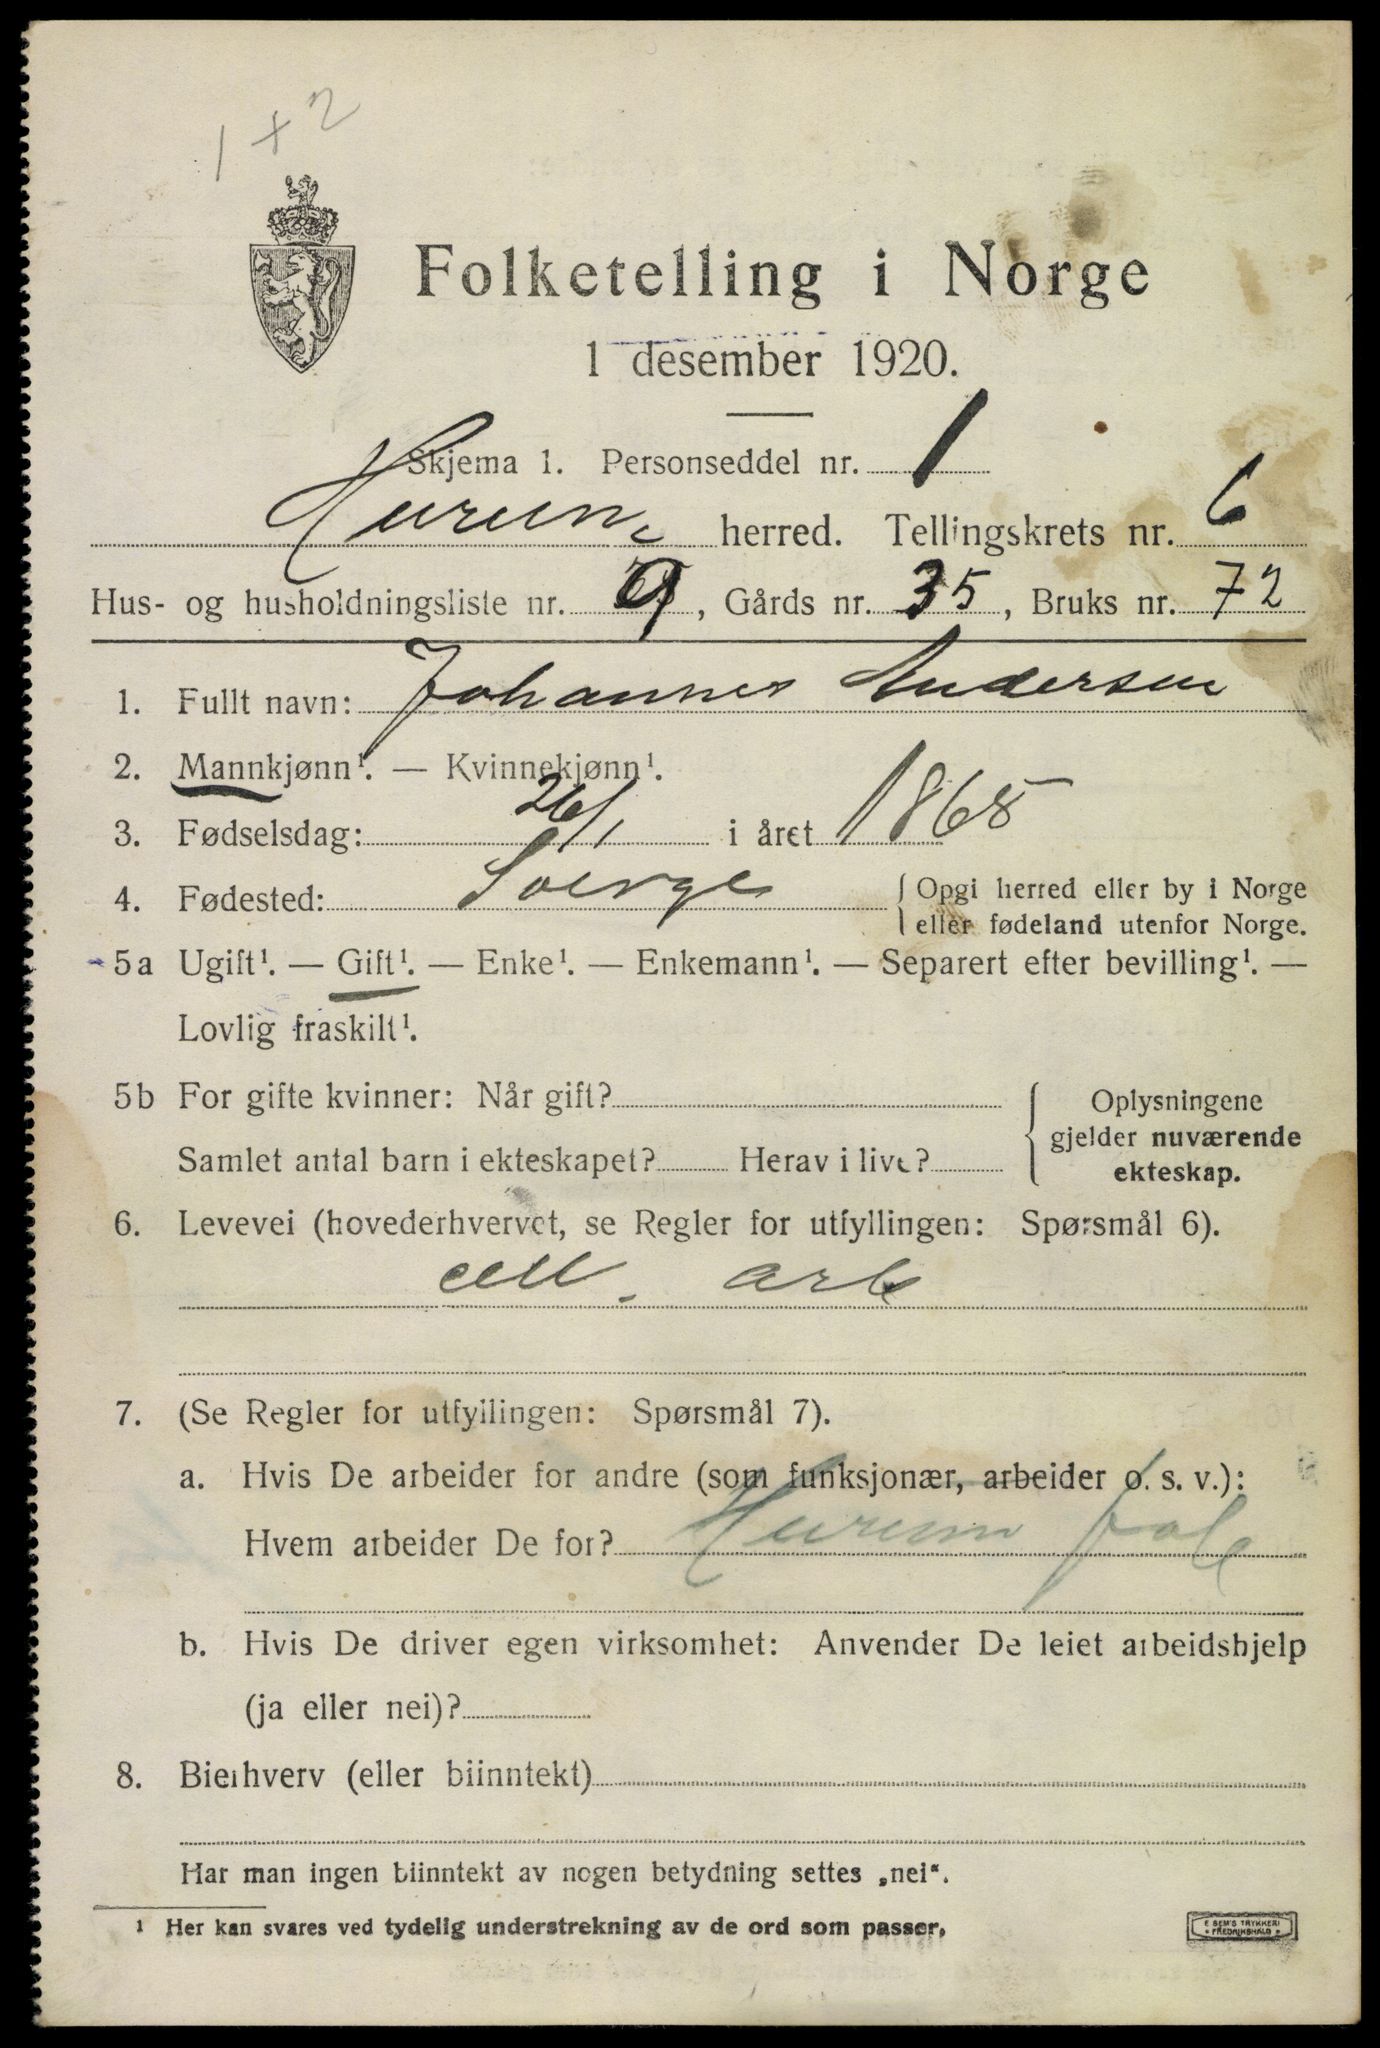 1 + 2
Folketelling i Norge
1 desember 1920.
Skjema 1. Personseddel nr. 1
Hurum herred. Tellingskrets nr. 6
Hus- og husholdningsliste nr. 9, Gårds nr. 35, Bruks nr. 72
1. Fullt navn: Johannes Andersen
2. Mannkjønn¹. — Kvinnekjønn¹.
3. Fødselsdag: 26/1 i året 1865
4. Fødested: Sverge { Opgi herred eller by i Norge
eller fødeland utenfor Norge.
5a Ugift¹. — Gift¹. — Enke¹. — Enkemann¹. — Separert efter bevilling¹. —
Lovlig fraskilt¹.
5b For gifte kvinner: Når gift? { Oplysningene
gjelder nuværende
Samlet antal barn i ekteskapet? Herav i live?
ekteskap.
6. Levevei (hovederhvervet, se Regler for utfyllingen: Spørsmål 6).
cell. arb
7. (Se Regler for utfyllingen: Spørsmål 7).
a. Hvis De arbeider for andre (som funksjonær, arbeider o. s. v.):
Hvem arbeider De for? Hurum
b. Hvis De driver egen virksomhet: Anvender De leiet arbeidshjelp
(ja eller nei)?
8. Bierhverv (eller biinntekt)
Har man ingen biinntekt av nogen betydning settes „nei“.
¹ Her kan svares ved tydelig understrekning av de ord som passer.
E SEM'S TRYKKERI
* FREDRIKSHALD *